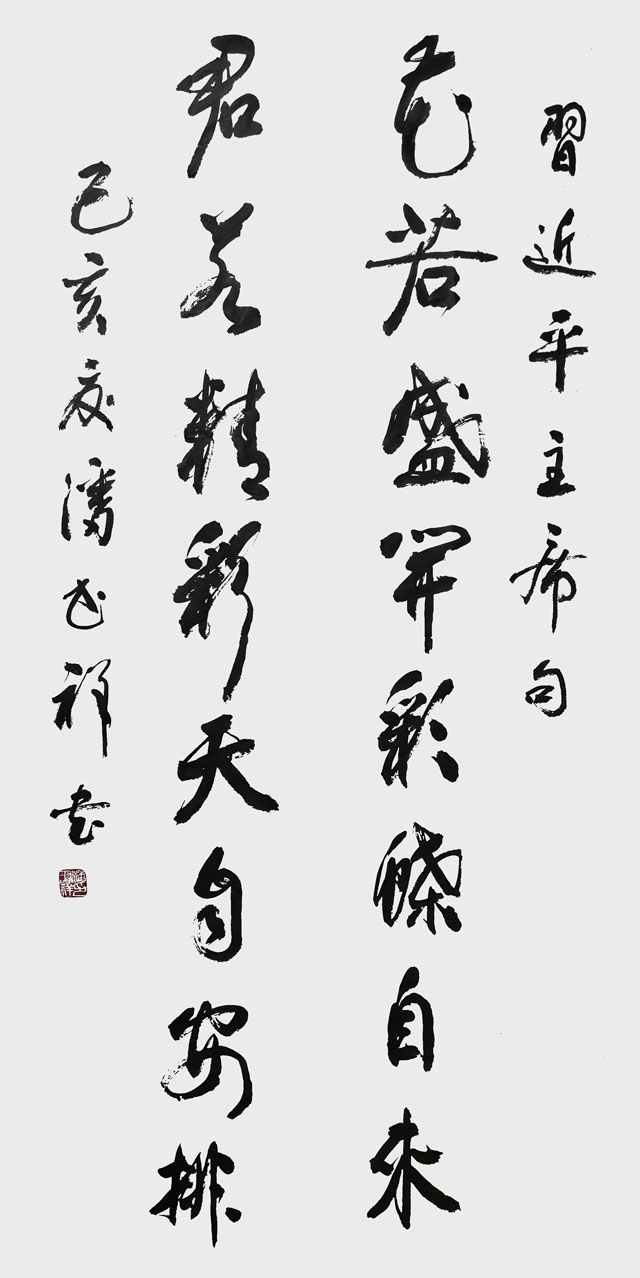 習近平主席句
花若盛開彩蝶自来
君若精彩天自安排
己亥夏潘祥書